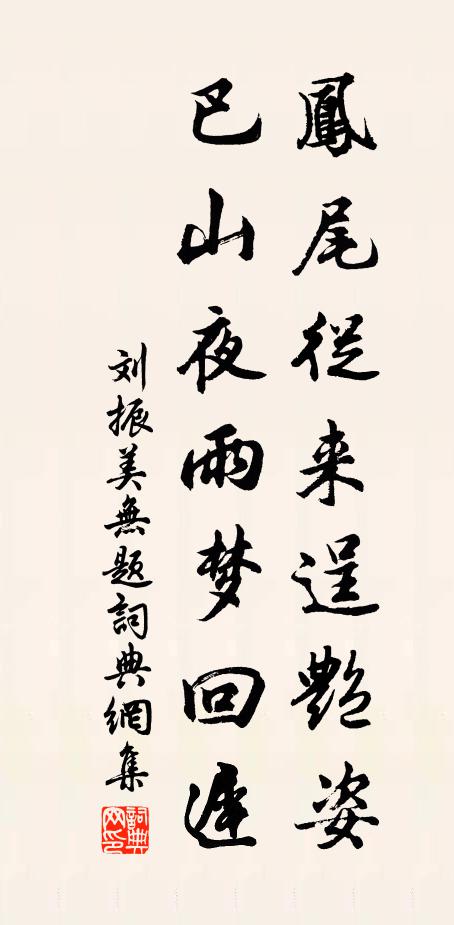 鳳尾從来逞艷姿
巴山夜雨梦回遲
刘振美無题詞典網集
詞典網印